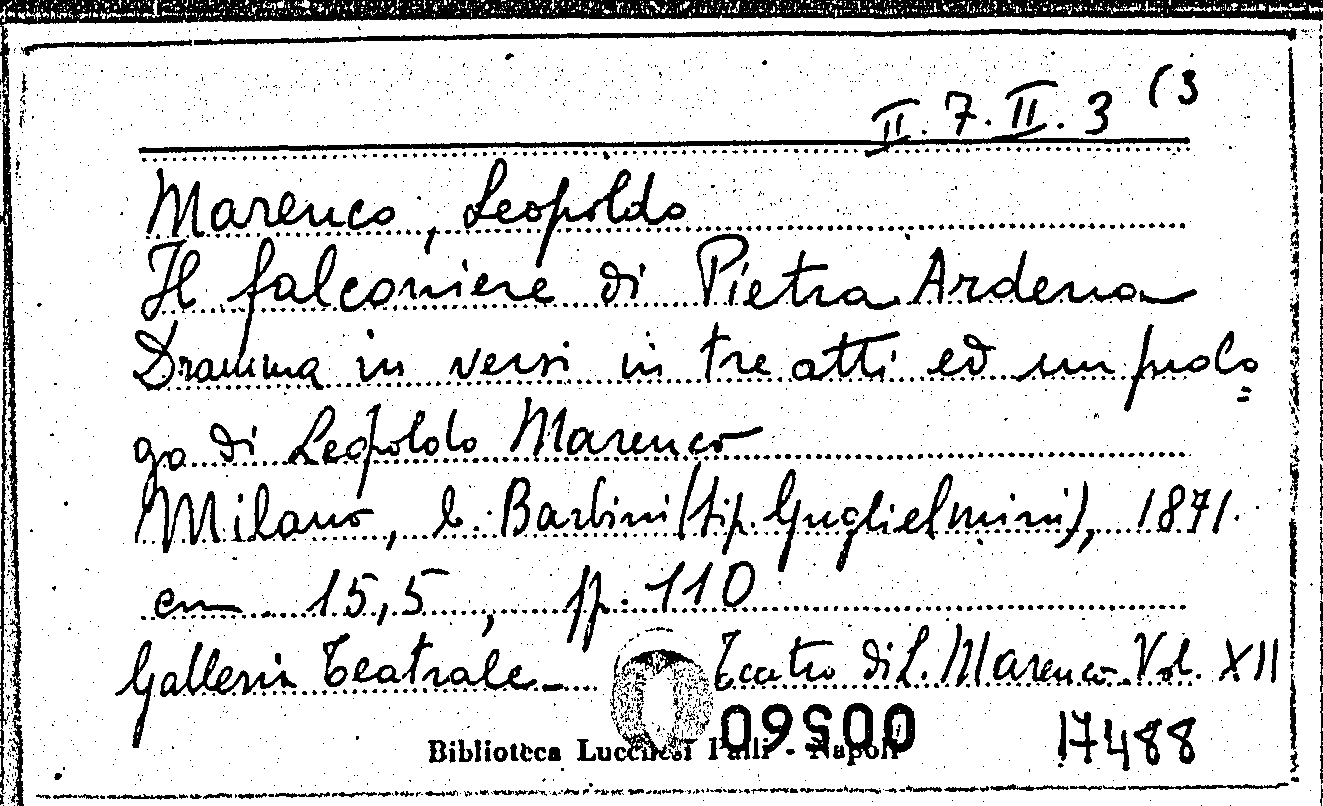 II. 7. II. 3 (3
Marenco, Leopoldo
Il falconiere di Pietra Ardena
Dramma in versi in tre atti ed un prolo=
go di Leopoldo Marenco
Milano, b. Barbini (tip. Guglielmini), 1871.
cm 15,5, pp. 110
Galleria Teatrale - Teatro di L. Marenco. Vol. XII
00560 17488
Biblioteca Lucchesi Palli - Napoli